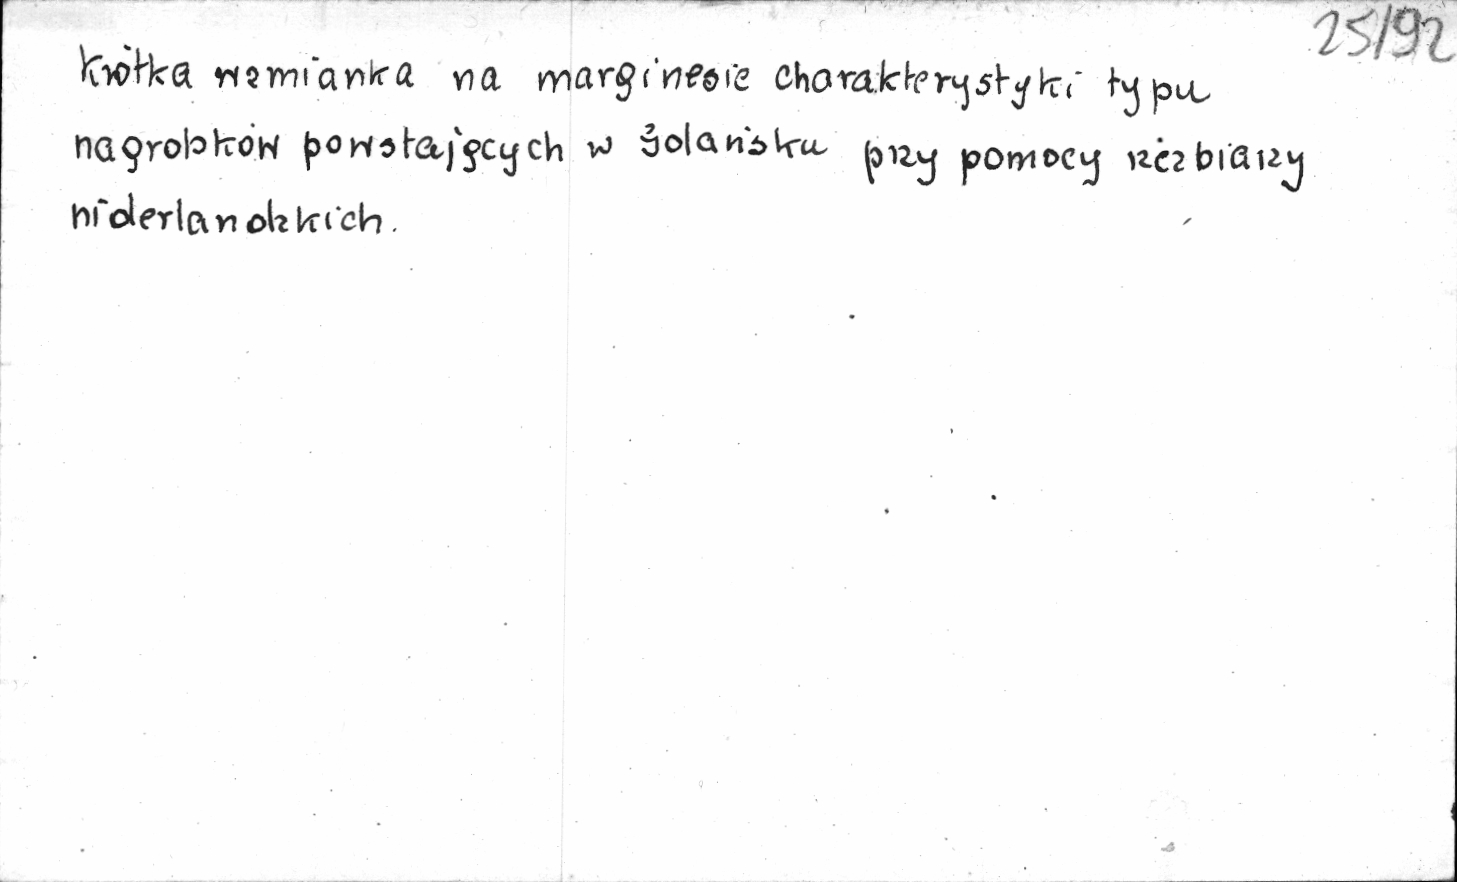 25/92
Krótka wzmianka na marginesie charakterystyki typu
nagrobków powstających w Gdańsku przy pomocy rzeźbiarzy
niderlandzkich.